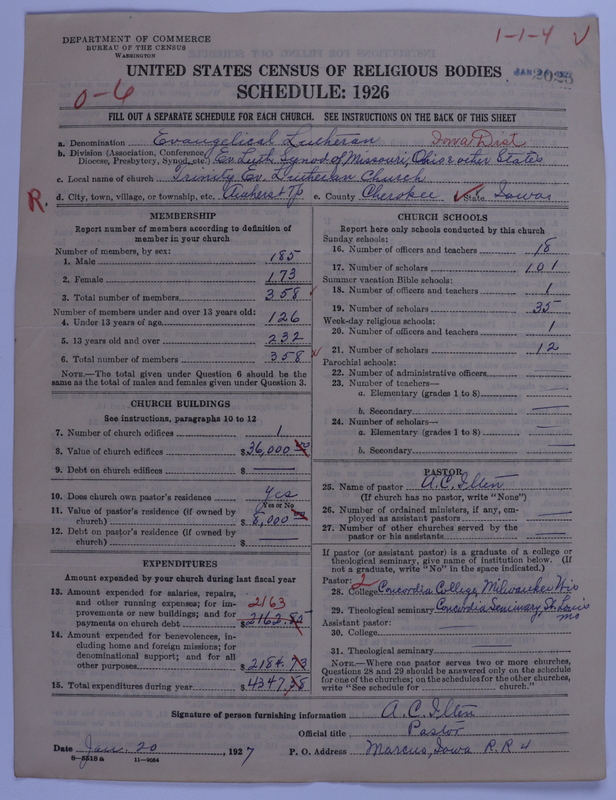 DEPARTMENT OF COMMERCE
BUREAU OF THE CENSUS
WASHINGTON
1-1-4 V
JAN 2025
0-6
UNITED STATES CENSUS OF RELIGIOUS BODIES
SCHEDULE: 1926
FILL OUT A SEPARATE SCHEDULE FOR EACH CHURCH. SEE INSTRUCTIONS ON THE BACK OF THIS SHEET
a. Denomination Evangelical Lutheran Iowa Dist
b. Division (Association, Conference, Diocese, Presbytery, Synod, etc.) Ev Luth Synod of Missouri, Ohio & other States
c. Local name of church Trinity Ev. Lutheran Church
R.
d. City, town, village, or township, etc. Amherst Tp e. County Cherokee State Iowa
MEMBERSHIP
Report number of members according to definition of
member in your church
Number of members, by sex:
1. Male 185
2. Female 173
3. Total number of members 358
Number of members under and over 13 years old:
4. Under 13 years of age 126
5. 13 years old and over 232
6. Total number of members 358
NOTE.—The total given under Question 6 should be the
same as the total of males and females given under Question 3.
CHURCH BUILDINGS
See instructions, paragraphs 10 to 12
7. Number of church edifices 1
8. Value of church edifices $36,000 00
9. Debt on church edifices $ —
10. Does church own pastor's residence Yes
(Yes or No)
11. Value of pastor's residence (if owned by
church) $8,000
12. Debt on pastor's residence (if owned by
church) $ —
EXPENDITURES
Amount expended by your church during last fiscal year
13. Amount expended for salaries, repairs,
and other running expenses; for im-
provements or new buildings; and for 2163
payments on church debt $2162.85
14. Amount expended for benevolences, in-
cluding home and foreign missions; for
denominational support; and for all
other purposes $2184.93
15. Total expenditures during year $4347.78
CHURCH SCHOOLS
Report here only schools conducted by this church
Sunday schools:
16. Number of officers and teachers 18
17. Number of scholars 101
Summer vacation Bible schools:
18. Number of officers and teachers 1
19. Number of scholars 35
Week-day religious schools:
20. Number of officers and teachers 1
21. Number of scholars 12
Parochial schools:
22. Number of administrative officers
23. Number of teachers—
a. Elementary (grades 1 to 8) —
b. Secondary —
24. Number of scholars—
a. Elementary (grades 1 to 8) —
b. Secondary —
PASTOR
25. Name of pastor A. C. Ilten
(If church has no pastor, write "None")
26. Number of ordained ministers, if any, em-
ployed as assistant pastors —
27. Number of other churches served by the
pastor or his assistants —
If pastor (or assistant pastor) is a graduate of a college or
theological seminary, give name of institution below. (If
not a graduate, write "No" in the space indicated.)
Pastor: 2
28. College Concordia College, Milwaukee Wis
29. Theological seminary Concordia Seminary, St. Louis
Mo
Assistant pastor:
30. College
31. Theological seminary —
NOTE.—Where one pastor serves two or more churches,
Questions 28 and 29 should be answered only on the schedule
for one of the churches; on the schedules for the other churches,
write "See schedule for church."
Signature of person furnishing information A. C. Ilten
Official title Pastor
Date Jan. 20, 1927 P. O. Address Marcus, Iowa R. R 4
8-5318 a 11-9064